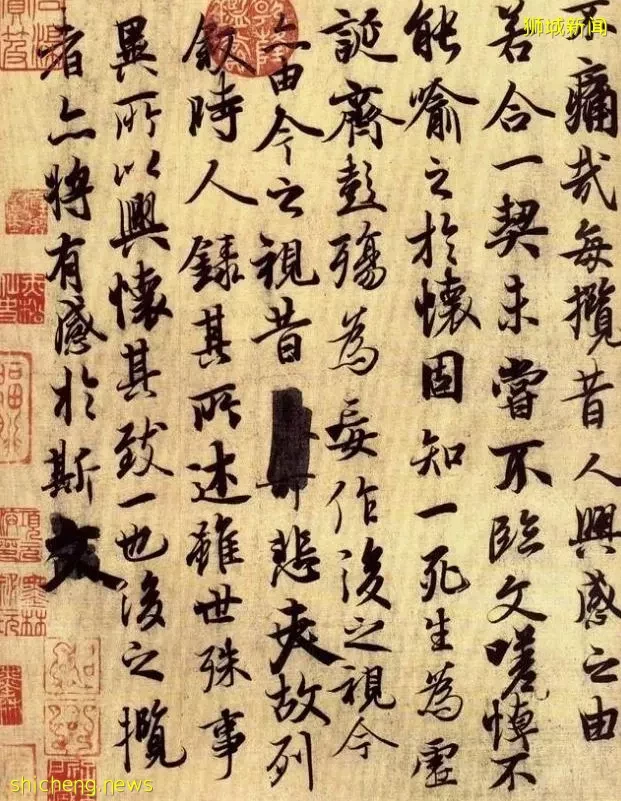 狮城新闻
不痛哉每攬昔人興感之由
若合一契未嘗不臨文嗟悼不
能喻之於懷固知一死生為虛
誕齊彭殤為妄作後之視今
亦由今之視昔悲夫故列
敘時人錄其所述雖世殊事
異所以興懷其致一也後之攬
者亦將有感於斯文
shicheng.news